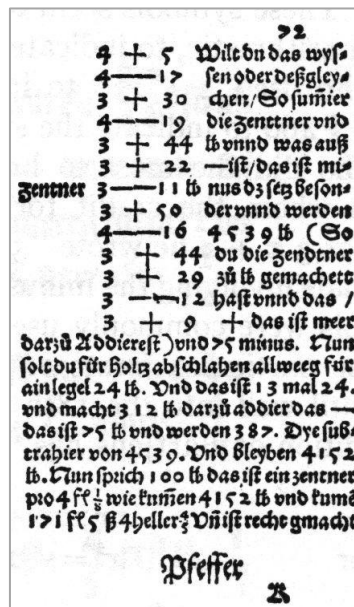 72
4 + 5 Wilt du das wys⸗
4 — 17 sen oder deßgley⸗
3 + 30 chen/So sumier
4 — 19 die zenttner vnd
3 + 44 ℔ vnnd was auß
3 + 22 — ist/das ist mi⸗
Zentner 3 — 11 ℔ nus dz setz beson⸗
3 + 50 der vnnd werden
4 — 16 4539 ℔ (So
3 + 44 du die zendtner
3 + 29 zů ℔ gemachett
3 — 12 hast vnnd das /
3 + 9 + das ist meer
darzů Addierest) vnd 75 minus. Nun
solt du für holtz abschlahen allweeg für
ain legel 24 ℔. Vnd das ist 13 mal 24.
vnd macht 312 ℔ darzů addier das —
das ist 75 ℔ vnd werden 387. Dye sub⸗
trahier von 4539. Vnd bleyben 4152
℔. Nun sprich 100 ℔ das ist ein zentner
pro 4 fl ⅛ wie kumen 4152 ℔ vnd kumē
171 fl 5 ß 4 heller Vñ ist recht gmacht
Pfeffer